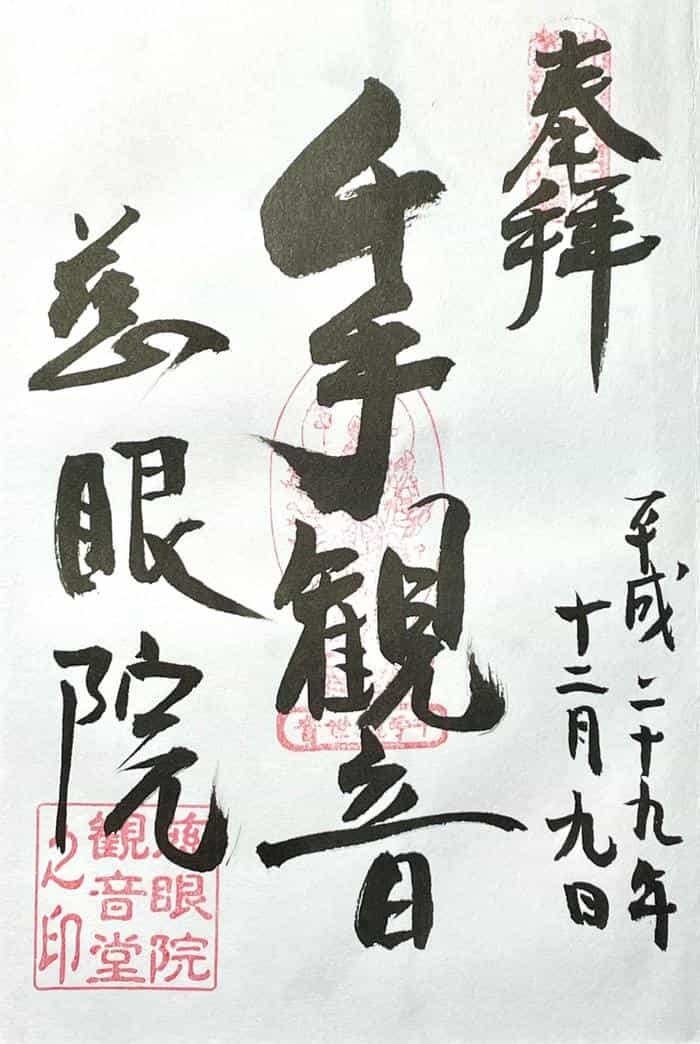 奉拝
平成二十九年
十二月九日
千手観音
慈眼院
慈眼院
観音堂
之印